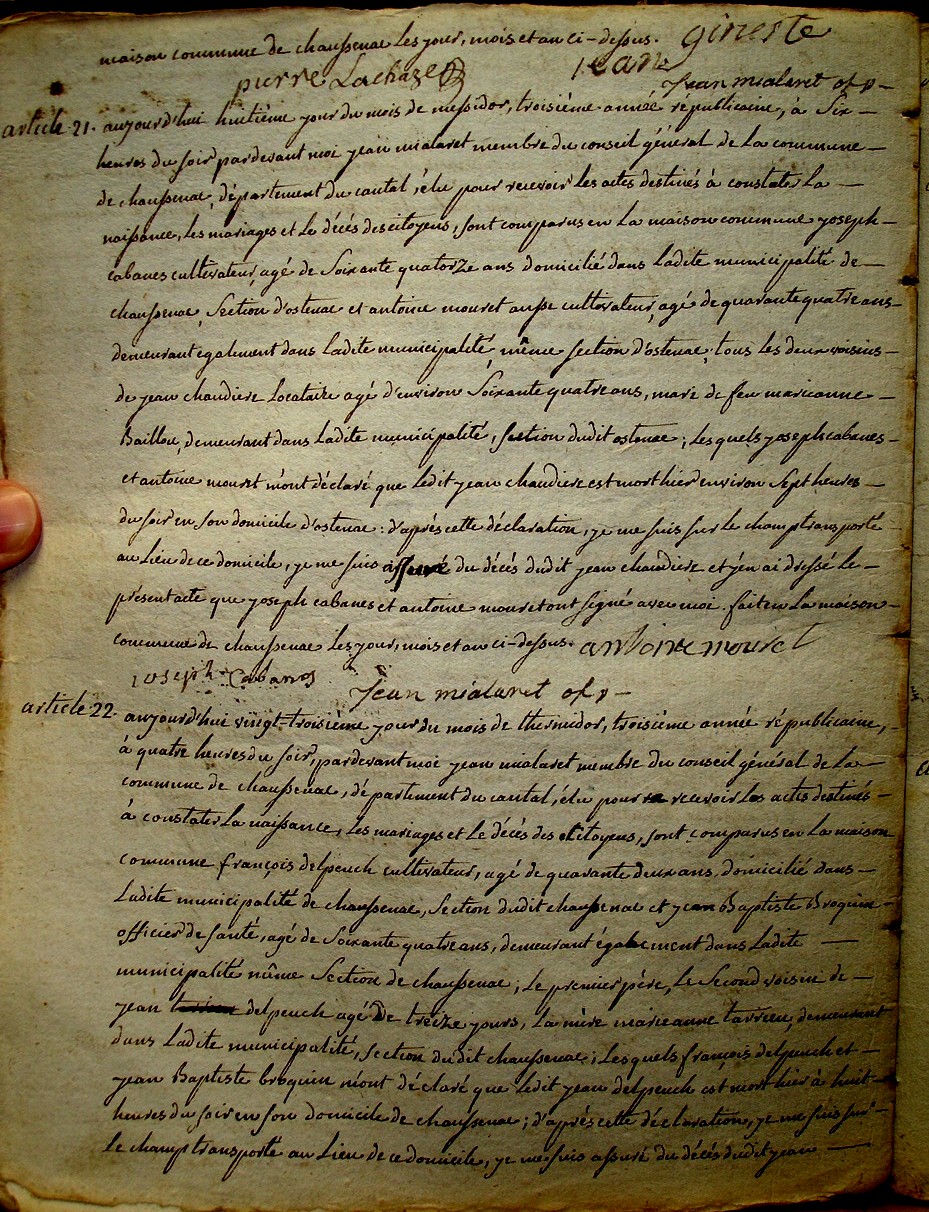 maison commune de chaussenac les jour, mois et an ci-dessus. gineste
pierre Lachaze jean
Jean mialaret of p-
article 21. aujourd'hui huitième jour du mois de messidor, troisième année républicaine, à Six
heures du soir pardevant moi jean mialaret membre du conseil général de la commune
de chaussenac, département du cantal, élu pour recevoir les actes destinés à constater la
naissance, les mariages et le décès des citoyens, sont comparus en la maison commune joseph
cabanes cultivateur, agé de Soixante quatorze ans domicilié dans ladite municipalité de
chaussenac, Section d'ostenac et antoine mouret ausse cultivateur, agé de quarante quatre ans
demeurant également dans ladite municipalité, même section d'ostenac, tous les deux voisins
de jean chaudiere Locataire agé d'environ Soixante quatre ans, mari de feu marieanne
Baillou, demeurant dans ladite municipalité, section dudit ostenac; lesquels joseph cabanes
et antoine mouret m'ont déclaré que ledit jean chaudiere est mort hier environ Sept heures
du soir en son domicile d'ostenac: d'après cette déclaration, je me suis sur le champ transporté
au lieu de ce domicile, je me suis assuré du décès dudit jean chaudiere et j'en ai dressé le
présent acte que joseph cabanes et antoine mouret ont signé avec moi. fait en la maison
commune de chaussenac les jour, mois et an ci-dessus. antoine mouret
joseph Cabanes
Jean mialaret of p-
article 22. aujourd'hui vingt-troisième jour du mois de thermidor, troisième année républicaine,
à quatre heures du soir, pardevant moi jean mialaret membre du conseil général de la
commune de chaussenac, département du cantal, élu pour recevoir les actes destinés
à constater la naissance, les mariages et le décès des citoyens, sont comparus en la maison
commune françois delpeuch cultivateur, agé de quarante deux ans, domicilié dans
ladite municipalité de chaussenac, Section dudit chaussenac et jean Baptiste Broquin
officier de santé, agé de Soixante quatre ans, demeurant également dans ladite
municipalité même Section de chaussenac; le premier père, le Second voisin de
jean delpeuch agé De treize jours, la mère marieanne tarrieu, demeurant
dans ladite municipalité, section dudit chaussenac; lesquels françois delpeuch et
jean Baptiste broquin m'ont déclaré que ledit jean delpeuch est mort hier à huit
heures du soir en son domicile de chaussenac; d'après cette déclaration, je me suis sur
le champ transporté au lieu de ce domicile, je me suis assuré du décès dudit jean